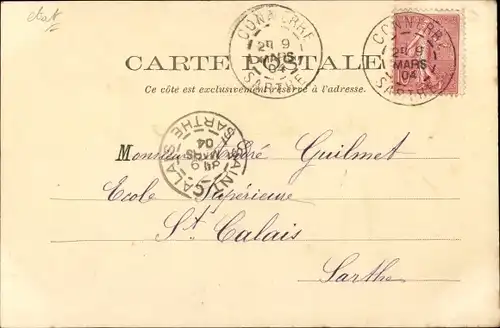 état
CONNERRÉ
2E 9
MARS
04
SARTHE
CONNERRÉ
2E 9
MARS
04
SARTHE
CARTE POSTALE
Ce côté est exclusivement réservé à l'adresse.
SAINT CALAIS
9
MARS
04
SARTHE
Monsieur André Guilmet
Ecole Supérieure
St Calais
Sarthe